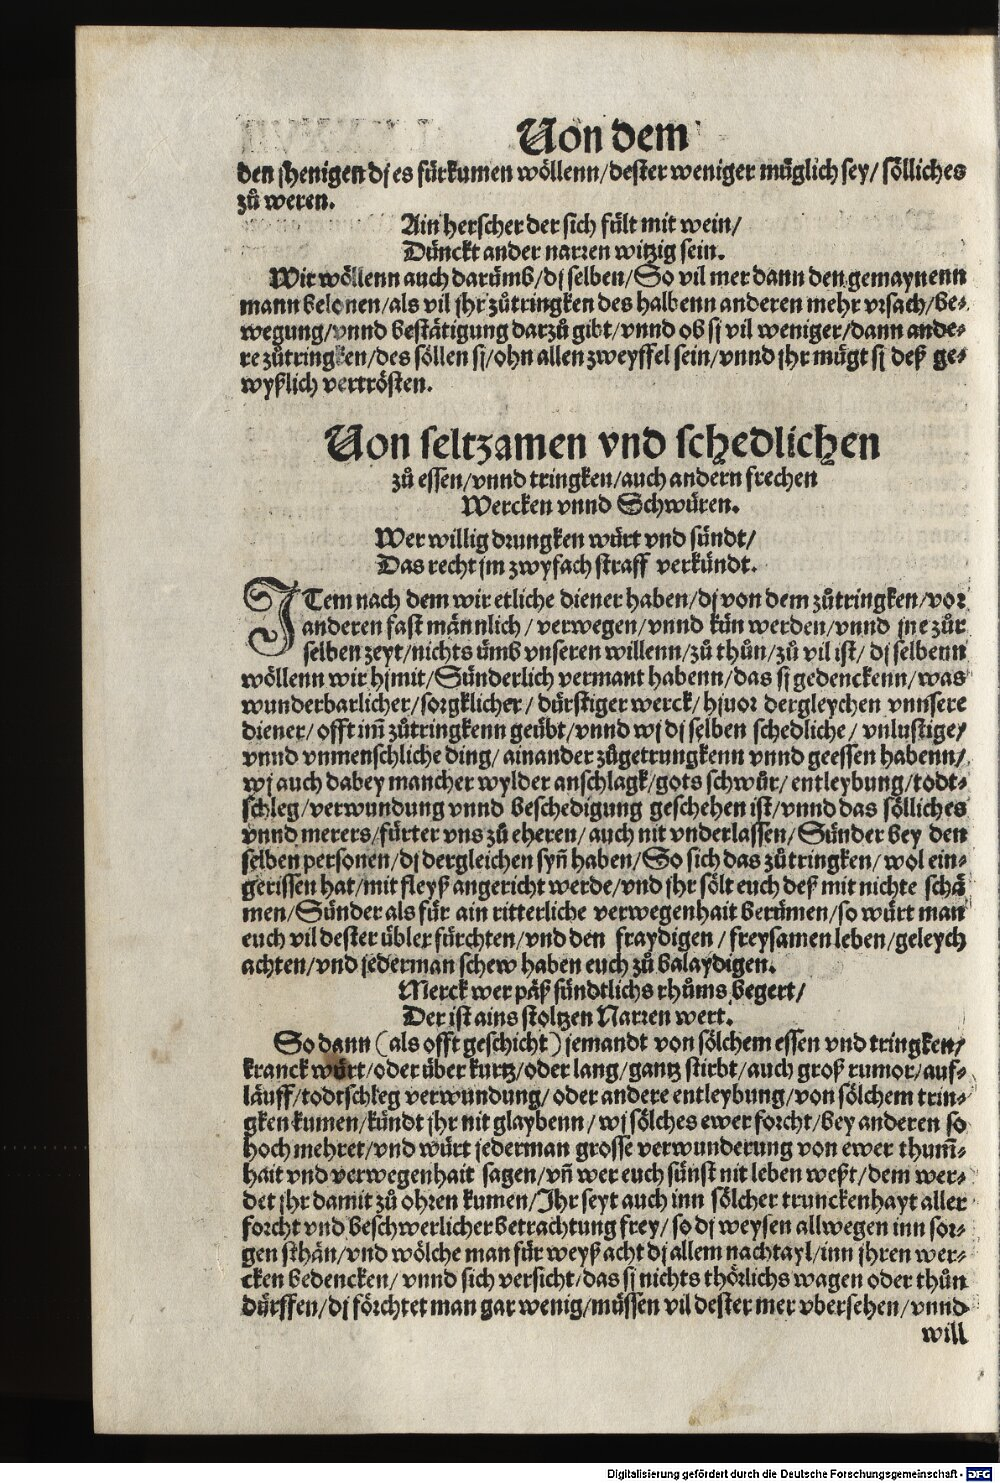 Von dem
den jhenigen dj es fürkumen wöllenn/dester weniger müglich sey/ sölliches
zů weren.
Ain herscher der sich fült mit wein/
Dünckt ander narren witzig sein.
Wir wöllenn auch darümb/dj selben/So vil mer dann den gemaynenn
mann belonen/als vil jhr zůtringken des halbenn anderen mehr vrsach/be-
wegung/vnnd bestätigung darzů gibt/vnnd ob sj vil weniger/dann ande-
re zůtringken/des söllen sj/ohn allen zweyffel sein/vnnd jhr mügt sj deß ge-
wyßlich vertrösten.
Von seltzamen vnd schedlichen
zů essen/vnnd tringken/auch andern frechen
Wercken vnnd Schwüren.
Wer willig drungken würt vnd sündt/
Das recht jm zwyfach straff verkündt.
ITem nach dem wir etliche diener haben/dj von dem zůtringken/vor
anderen fast männlich/ verwegen/vnnd kün werden/vnnd jne zůr
selben zeyt/nichts ümb vnseren willenn/zů thůn/zů vil ist/ dj selbenn
wöllenn wir hjmit/Sünderlich vermant habenn/das sj gedenckenn/was
wunderbarlicher/sorgklicher/ dürstiger werck/hjuor dergleychen vnnsere
diener/offt im̃ zůtringkenn geübt/vnnd wj dj selben schedliche/ vnlustige/
vnnd vnmenschliche ding/ ainander zůgetrungkenn vnnd geessen habenn/
wj auch dabey mancher wylder anschlagk/gots schwůr/ entleybung/todt-
schleg/verwundung vnnd beschedigung geschehen ist/vnnd das sölliches
vnnd merers/fürter vns zů eheren/ auch nit vnderlassen/Sünder bey den
selben personen/dj dergleichen syñ haben/So sich das zůtringken/wol ein-
gerissen hat/mit fleyß angericht werde/vnd jhr sölt euch deß mit nichte schä
men/Sünder als für ain ritterliche verwegenhait berümen/so würt man
euch vil dester übler fürchten/vnd den fraydigen/freysamen leben/geleych
achten/vnd jederman schew haben euch zů balaydigen.
Merck wer päß sündtlichs rhůms begert/
Der ist ains stoltzen Narren wert.
So dann (als offt geschicht) jemandt von sölchem essen vnd tringken/
kranck würt/oder über kurtz/oder lang/gantz stirbt/auch groß rumor/auf-
läuff/todtschleg verwundung/ oder andere entleybung/von sölchem trin-
gken kumen/kündt jhr nit glaybenn/ wj sölches ewer forcht/bey anderen so
hoch mehret/vnd würt jederman grosse verwunderung von ewer thum̃-
hait vnd verwegenhait sagen/vñ wer euch sünst nit leben weßt/dem wer-
det jhr damit zů ohren kumen/Jhr seyt auch inn sölcher trunckenhayt aller
forcht vnd beschwerlicher betrachtung frey/ so dj weysen allwegen inn sor-
gen sthän/vnd wölche man für weyß acht dj allem nachtayl/inn jhren wer-
cken bedencken/ vnnd sich versicht/das sj nichts thörlichs wagen oder thůn
dürffen/dj förchtet man gar wenig/müssen vil dester mer vbersehen/vnnd
will
Digitalisierung gefördert durch die Deutsche Forschungsgemeinschaft - DFG